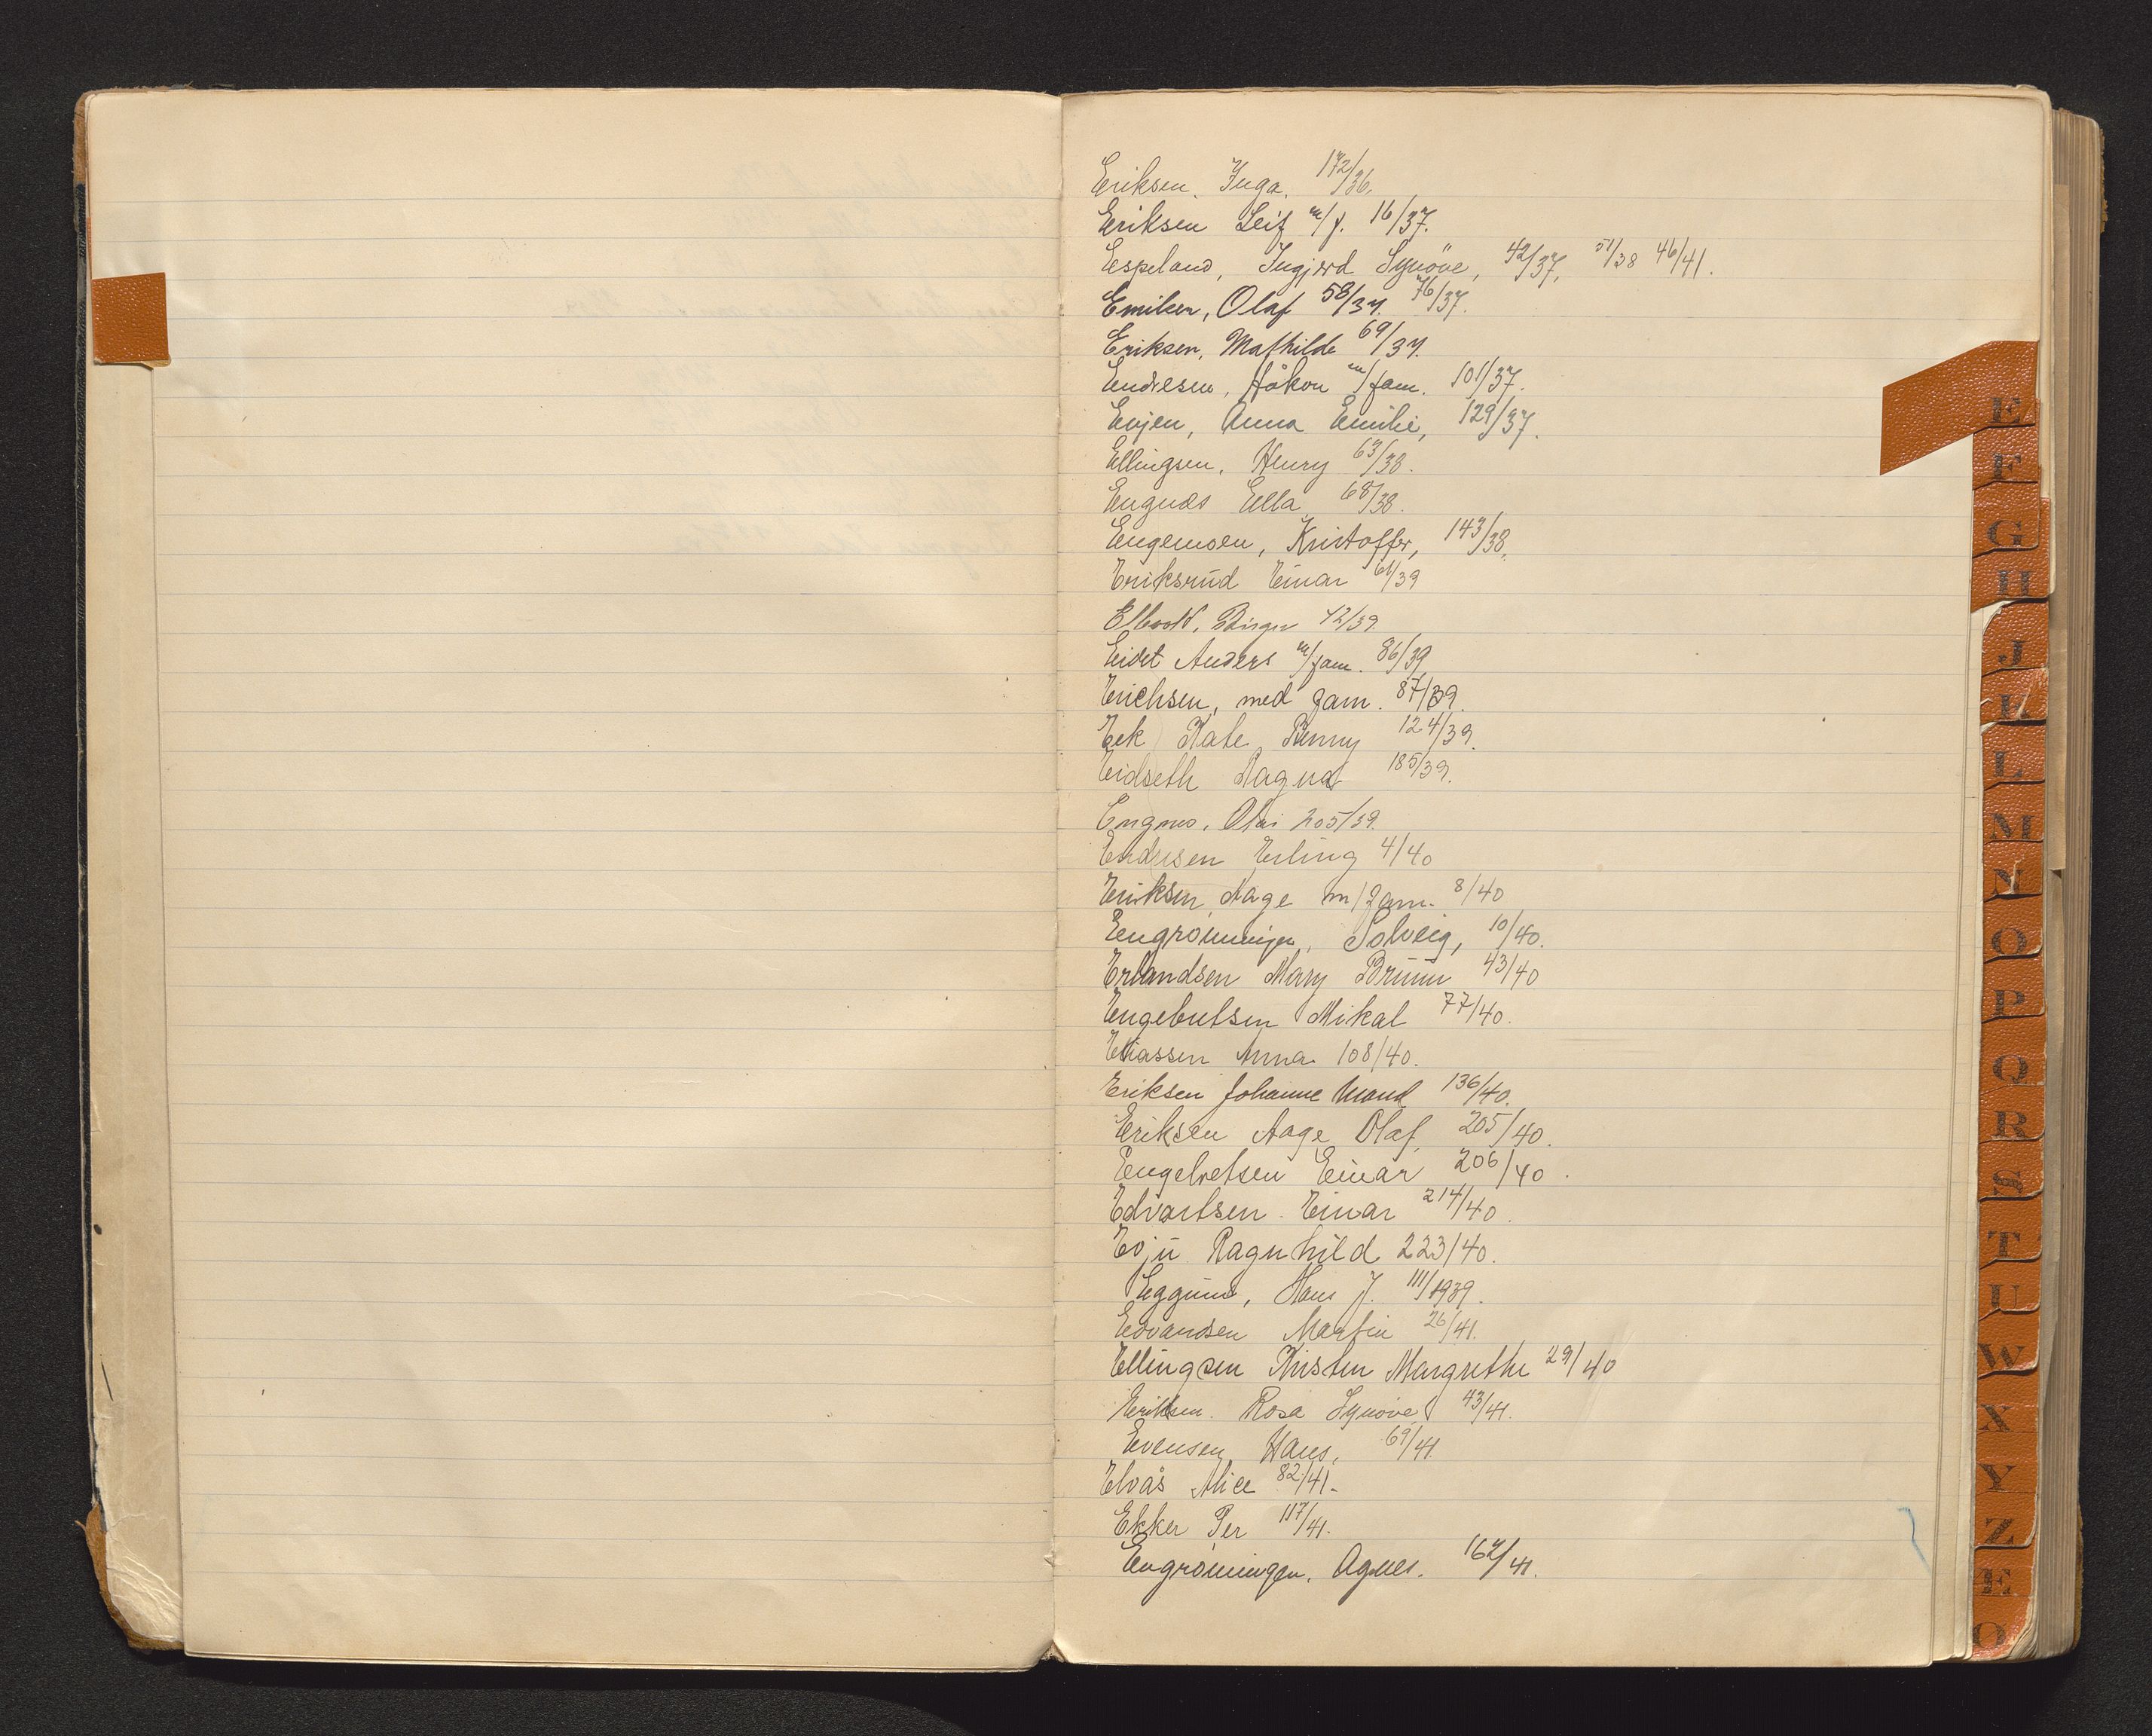 Eriksen, Inga, 172/36.
Eriksen Leif m/f. 16/37.
Espeland, Ingjerd Synöve, 42/37, 51/38 46/41.
Emilsen, Olaf 58/37. 76/37.
Eriksen, Mathilde 69/37.
Endresen, Håkon m/fam. 101/37.
Evjen, Anna Emilie, 129/37.
Ellingsen, Henry 63/38.
Engnæs Ella 68/38.
Engemoen, Kristoffer, 143/38.
Eriksrud Einar 61/39
Birger 42/39.
Eidet Anders m/fam. 86/39
Erichsen, med fam. 87/39.
Eek Kate Benny 124/39.
Eidseth Magna 185/39.
Engnes, Olai 205/39.
Endresen Erling 4/40
Eriksen, Aage m/fam. 8/40
Engrönningen, Solveig, 10/40.
Erlandsen Mary Bruun 43/40
Engebretsen Mikal 77/40.
Eliassen Anna 108/40.
Eriksen Johanne Maud 136/40.
Eriksen Aage Olaf 205/40.
Engebretsen Einar 206/40.
Edvartsen Einar 214/40.
Evju Ragnhild 223/40.
Eggum, Hans J. 111/1939.
Edvardsen Martin 26/41.
Ellingsen Kristen Margrethe 29/40
Eriksen. Rosa Synöve 43/41.
Evensen, Hans, 69/41.
Elvås Alice 82/41.
Ekker Per 117/41.
Engrönningen, Agnes. 162/41.
E
F
G
H
J
K
L
M
N
O
P
Q
R
S
T
U
W
X
Y
Z
E
O